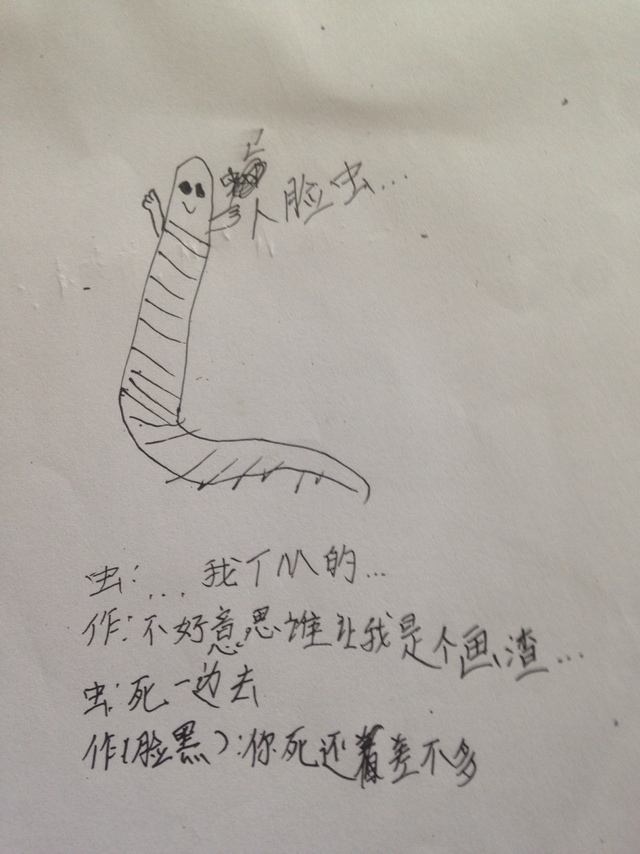 人脸虫...
虫:...我TM的...
作:不好意思谁让我是个画渣...
虫:死一边去
作(脸黑):你死还差不多